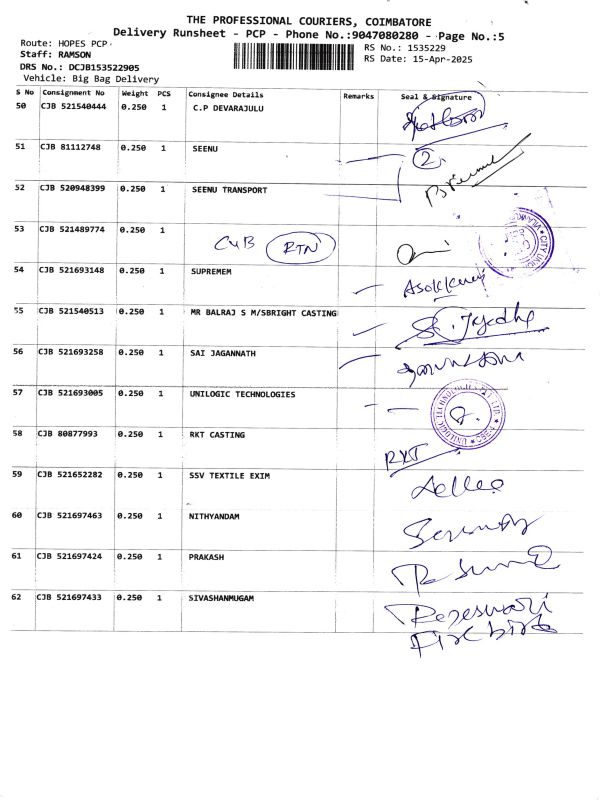 THE PROFESSIONAL COURIERS, COIMBATORE
Delivery Runsheet - PCP - Phone No.:9047080280 - Page No.:5
Route: HOPES PCP
Staff: RAMSON
DRS No.: DCJB153522905
Vehicle: Big Bag Delivery
RS No.: 1535229
RS Date: 15-Apr-2025
S No Consignment No Weight PCS Consignee Details Remarks Seal & Signature
50 CJB 521540444 0.250 1 C.P DEVARAJULU
51 CJB 81112748 0.250 1 SEENU 2
52 CJB 520948399 0.250 1 SEENU TRANSPORT
53 CJB 521489774 0.250 1 CUB RTN
CITY UNION
54 CJB 521693148 0.250 1 SUPREMEM
55 CJB 521540513 0.250 1 MR BALRAJ S M/SBRIGHT CASTING
56 CJB 521693258 0.250 1 SAI JAGANNATH
57 CJB 521693005 0.250 1 UNILOGIC TECHNOLOGIES
UNILOGIC TECHNOLOGIES PVT LTD
58 CJB 80877993 0.250 1 RKT CASTING RKT
59 CJB 521652282 0.250 1 SSV TEXTILE EXIM
60 CJB 521697463 0.250 1 NITHYANDAM
61 CJB 521697424 0.250 1 PRAKASH
62 CJB 521697433 0.250 1 SIVASHANMUGAM Rajeswari
Fire bird